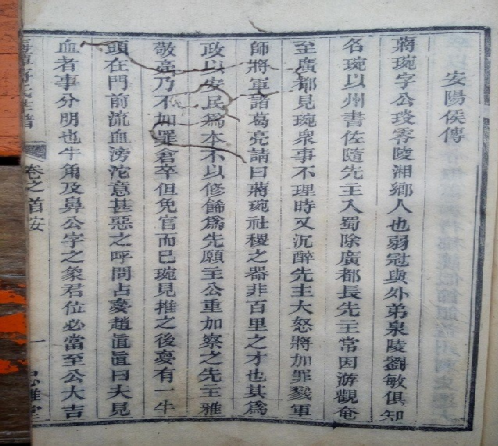 安陽侯傳
蔣琬字公琰零陵湘鄉人也弱冠與外弟泉陵劉敏俱知
名琬以州書佐隨先主入蜀除廣都長先主常因游觀奄
至廣都見琬衆事不理時又沉醉先主大怒將加罪戮軍
師將軍諸葛亮請曰蔣琬社稷之器非百里之才也其爲
政以安民爲本不以修飾爲先願主公重加察之先主雅
敬亮乃不加罪倉卒但免官而已琬見推之後夜有一牛
頭在門前流血滂沱意甚惡之呼問占夢趙直直曰夫見
血者事分明也牛角及鼻公字之象君位必當至公大吉
卷之首
一